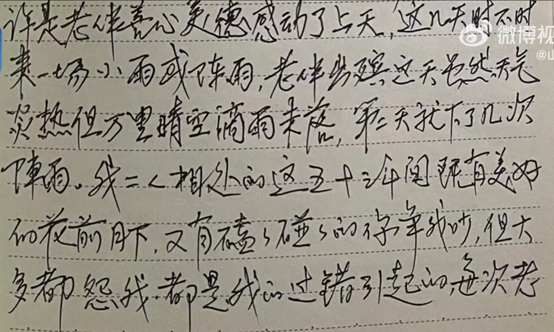 许是老伴善心美德感动了上天，这几天时不时
来一场小雨或阵雨，老伴出殡这天虽然天气
炎热但万里晴空滴雨未落，第二天就下了几次
阵雨。我二人相处的这五十三年间既有美好
的花前月下，又有磕磕碰碰的争吵，但大
多都怨我都是我的过错引起的，每次老
微博视